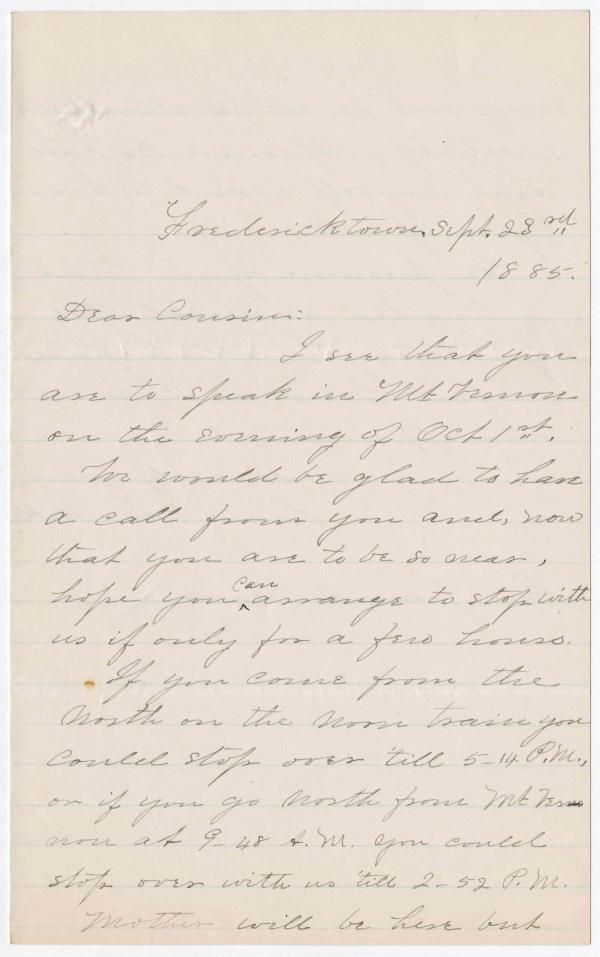 Fredericktown, Sept. 23rd
1885.
Dear Cousin:
I see that you
are to speak in Mt Vernon
on the evening of Oct 1st.
We would be glad to have
a call from you and, now
that you are to be so near,
hope you can arrange to stop with
us if only for a few hours.
If you come from the
North on the noon train you
could stop over 'till 5-14 P.M.,
or if you go North from Mt Ver
non at 9-48 A.M. you could
stop over with us 'till 2-52 P.M.
Mother will be here but